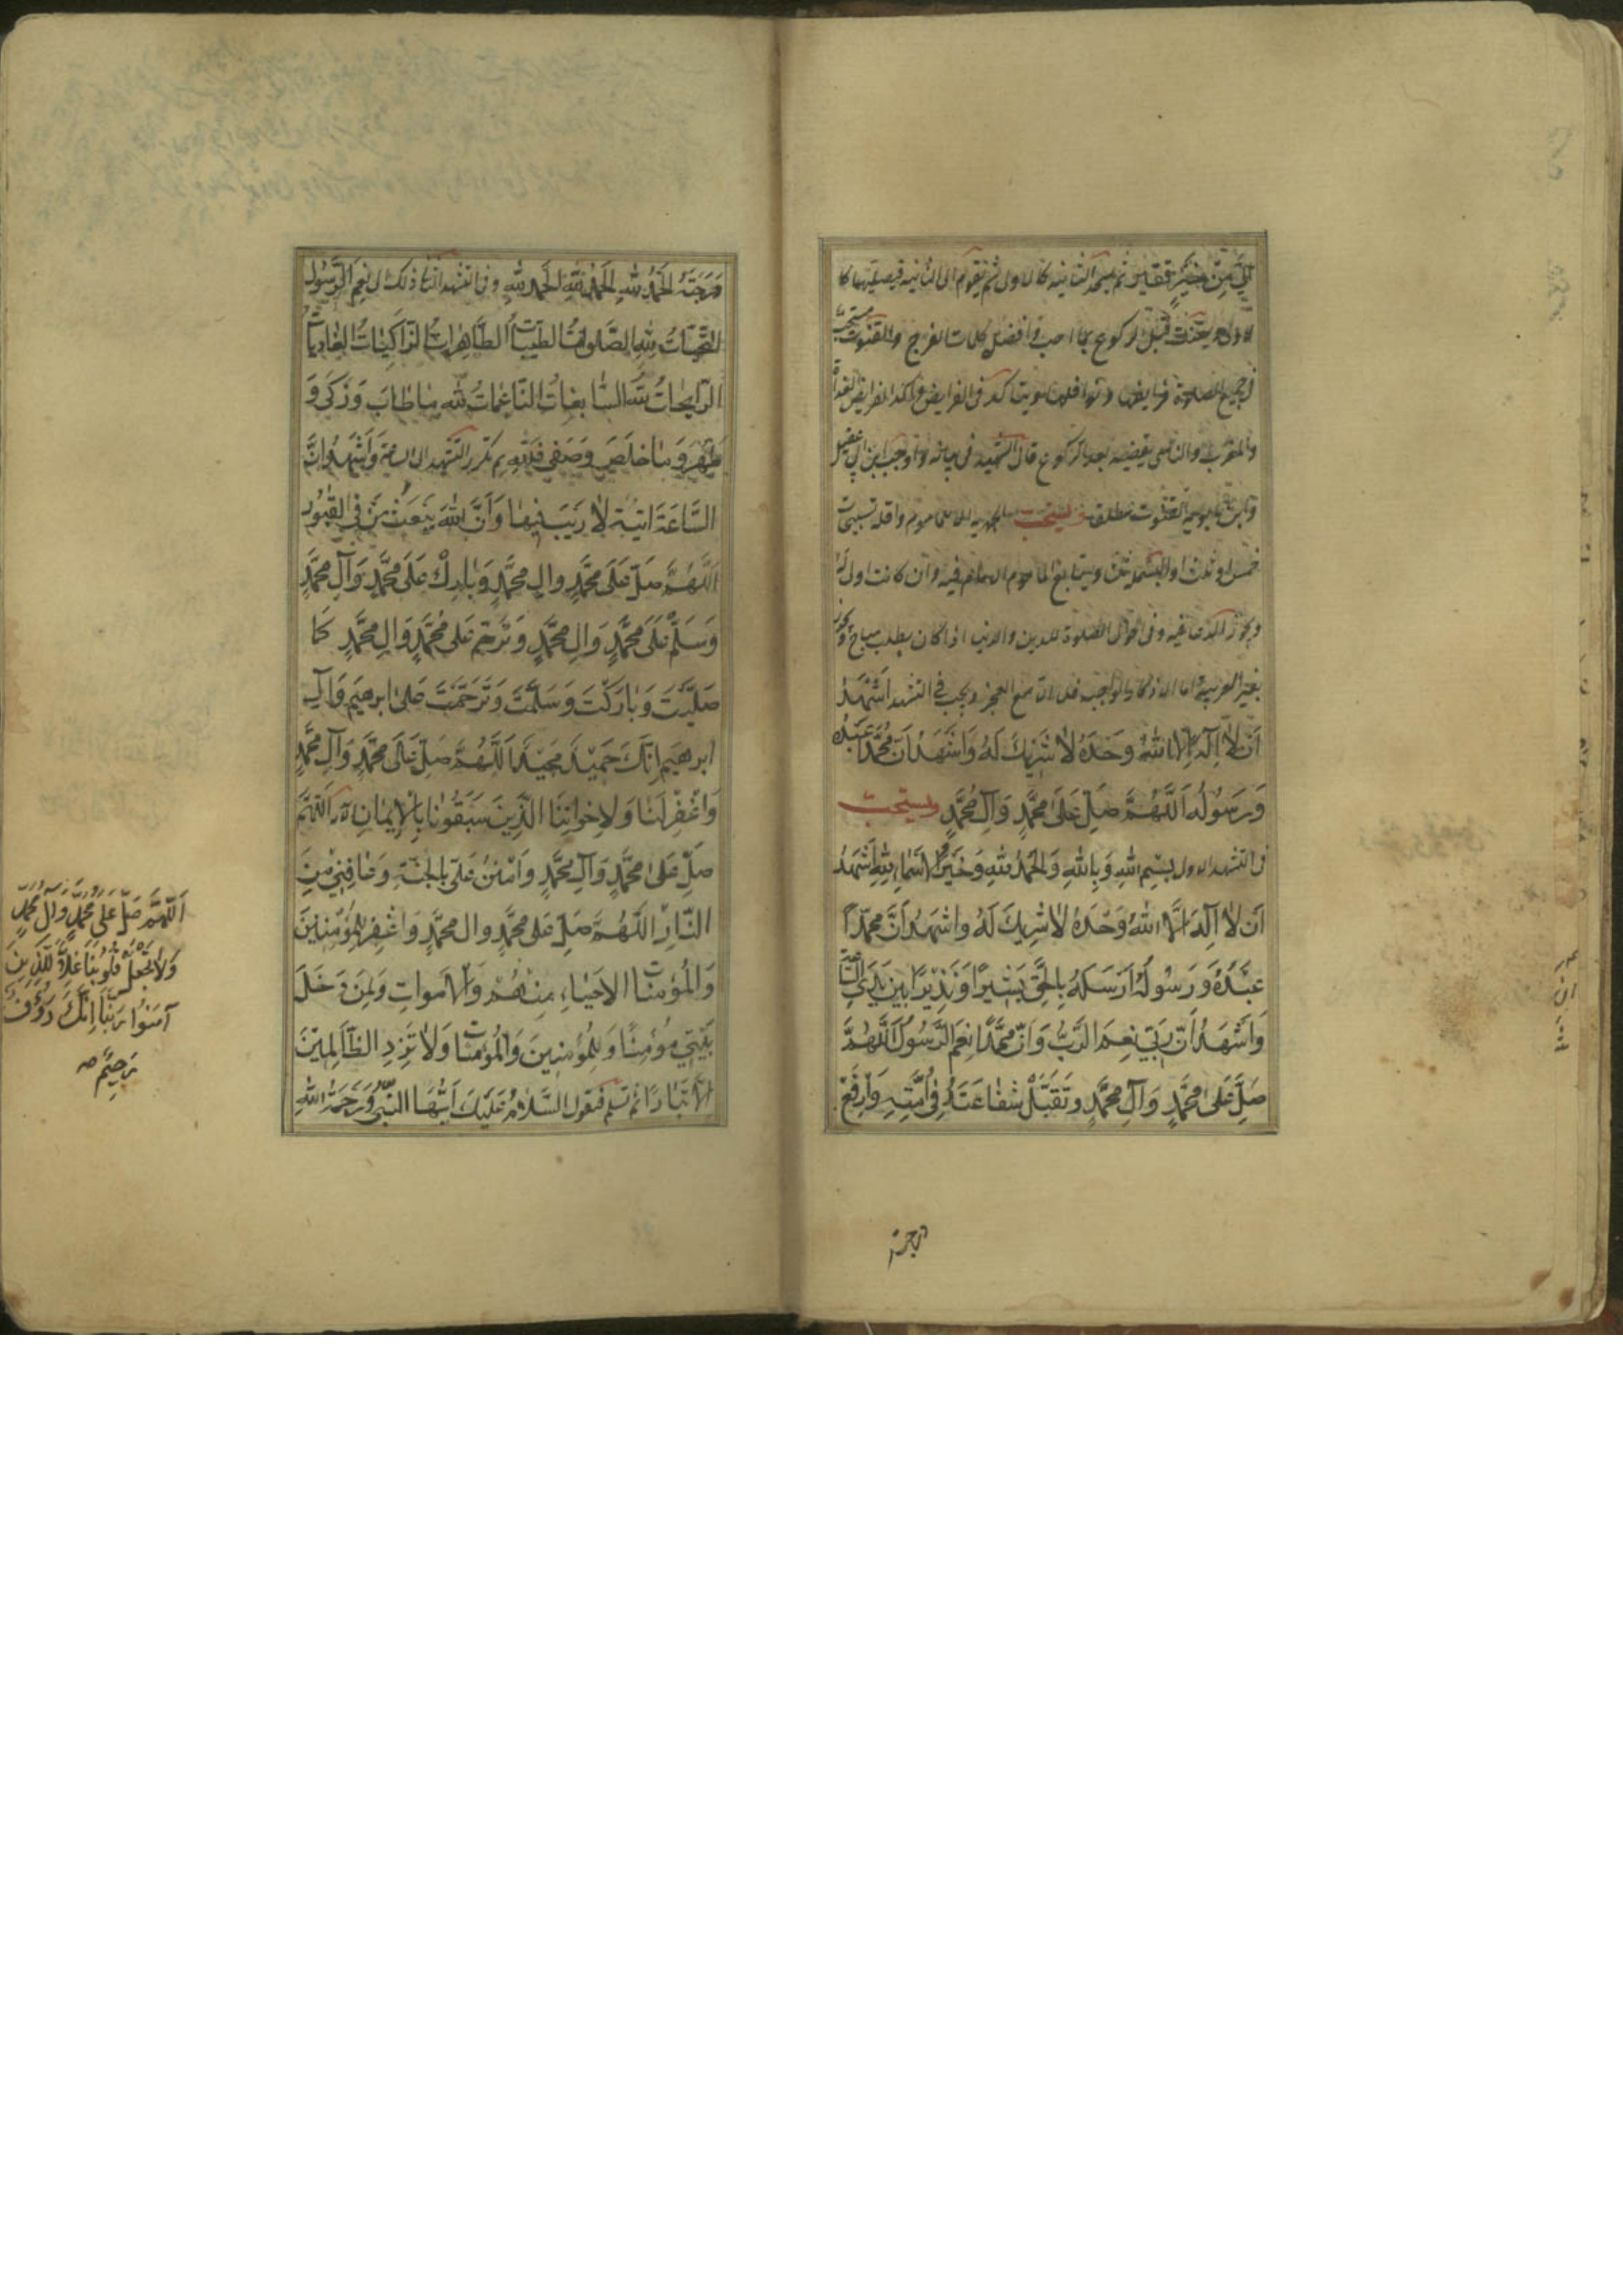 الي من خير فقير ثم يسجد الثانية كالاولى ثم يقوم الى الثانية فيصليها كا
لاولى ويقنت قبل الركوع بما احب وافضل كلمات الفرج والقنوت مستحب
في جميع الصلوة فرايضها ونوافلها ويتاكد في الفرايض واكد الفرايض الغداة
والمغرب والناسي يقضيه بعد الركوع قال الشهيد في بيانه واوجب ابن ابي عقيل
وابن بابويه القنوت مطلقا ويستحب الجهر به الا للماموم واقله تسبيحات
خمس او ثلث او البسملة ثلثا ويتابع الماموم الامام فيه وان كانت اولى له
ويجوز الدعا فيه وفي احوال الصلوة للدين والدنيا اذا كان بطلب مباح ويجوز
بغير العربية اما الاذكار الواجبة فلا الا مع العجز ويجب في التشهد اَشْهَدُ
اَنْ لاٰ اِلٰهَ اِلَّا اللهُ وَحْدَهُ لاٰ شَرِيْكَ لَهُ وَاَشْهَدُ اَنَّ مُحَمَّداً عَبْدُهُ
وَرَسُوْلُهُ اَللّٰهُمَّ صَلِّ عَلٰى مُحَمَّدٍ وَآلِ مُحَمَّدٍ ويستحب
في التشهد الاول بِسْمِ اللهِ وَبِاللهِ وَالْحَمْدُ لِلّٰهِ وَخَيْرُ الْاَسْمٰاءِ لِلّٰهِ اَشْهَدُ
اَنْ لاٰ اِلٰهَ اِلَّا اللهُ وَحْدَهُ لاٰ شَرِيكَ لَهُ وَاَشْهَدُ اَنَّ مُحَمَّداً
عَبْدُهُ وَرَسُوْلُهُ اَرْسَلَهُ بِالْحَقِّ بَشِيراً وَنَذِيْراً بَيْنَ يَدَيِ السَّاعَةِ
وَاَشْهَدُ اَنَّ رَبِّيْ نِعْمَ الرَّبُّ وَاَنَّ مُحَمَّداً نِعْمَ الرَّسُوْلُ اَللّٰهُمَّ
صَلِّ عَلٰى مُحَمَّدٍ وَآلِ مُحَمَّدٍ وَتَقَبَّلْ شَفٰاعَتَهُ فِيْ اُمَّتِهِ وَارْفَعْ
درجته
دَرَجَتَهُ اَلْحَمْدُ لِلّٰهِ اَلْحَمْدُ لِلّٰهِ اَلْحَمْدُ لِلّٰهِ وفي التشهد الثاني ذلك الى نِعْمَ الرَّسُوْلُ
اَلتَّحِيَّاتُ لِلّٰهِ الصَّلَوٰاتُ الطَّيِّبٰاتُ الطّٰاهِرٰاتُ الزّٰاكِيٰاتُ الْغٰادِيٰاتُ
الرّٰايِحٰاتُ لِلّٰهِ السّٰابِغٰاتُ النّٰاعِمٰاتُ لِلّٰهِ مٰا طٰابَ وَزَكٰى وَ
طَهُرَ وَمٰا خَلَصَ وَصَفٰى فَلِلّٰهِ ثم تكرر التشهد الى الساعة وَاَشْهَدُ اَنَّ
السّٰاعَةَ اٰتِيَةٌ لاٰ رَيْبَ فِيْهٰا وَاَنَّ اللهَ يَبْعَثُ مَنْ فِي الْقُبُوْرِ
اَللّٰهُمَّ صَلِّ عَلٰى مُحَمَّدٍ وَالِ مُحَمَّدٍ وَبٰارِكْ عَلٰى مُحَمَّدٍ وَآلِ مُحَمَّدٍ
وَسَلِّمْ عَلٰى مُحَمَّدٍ وَالِ مُحَمَّدٍ وَتَرَحَّمْ عَلٰى مُحَمَّدٍ وَالِ مُحَمَّدٍ كَمٰا
صَلَّيْتَ وَبٰارَكْتَ وَسَلَّمْتَ وَتَرَحَّمْتَ عَلٰى اِبْرٰهِيْمَ وَآلِ
اِبْرٰهِيْمَ اِنَّكَ حَمِيْدٌ مَجِيْدٌ اَللّٰهُمَّ صَلِّ عَلٰى مُحَمَّدٍ وَآلِ مُحَمَّدٍ
وَاغْفِرْ لَنٰا وَلِاِخْوٰانِنَا الَّذِيْنَ سَبَقُوْنٰا بِالْاِيْمٰانِ اَللّٰهُمَّ
صَلِّ عَلٰى مُحَمَّدٍ وَآلِ مُحَمَّدٍ وَامْنُنْ عَلَيَّ بِالْجَنَّةِ وَعٰافِنِيْ مِنَ
النّٰارِ اَللّٰهُمَّ صَلِّ عَلٰى مُحَمَّدٍ وَالِ مُحَمَّدٍ وَاغْفِرْ لِلْمُؤْمِنِيْنَ
وَالْمُؤْمِنٰاتِ الْاَحْيٰاءِ مِنْهُمْ وَالْاَمْوٰاتِ وَلِمَنْ دَخَلَ
بَيْتِيَ مُؤْمِنًا وَلِلْمُؤْمِنِينَ وَالْمُؤْمِنٰاتِ وَلاٰ تَزِدِ الظّٰالِمِيْنَ
اِلّٰا تَبٰارًا ثم تسلم فتقول اَلسَّلاٰمُ عَلَيْكَ اَيُّهَا النَّبِيُّ وَرَحْمَةُ اللهِ
اَللّٰهُمَّ صَلِّ عَلٰى مُحَمَّدٍ وَآلِ مُحَمَّدٍ
وَلاٰ تَجْعَلْ فِيْ قُلُوْبِنٰا غِلاًّ لِلَّذِينَ
آمَنُوْا رَبَّنٰا اِنَّكَ رَؤُفٌ
رَحِيْمٌ صح